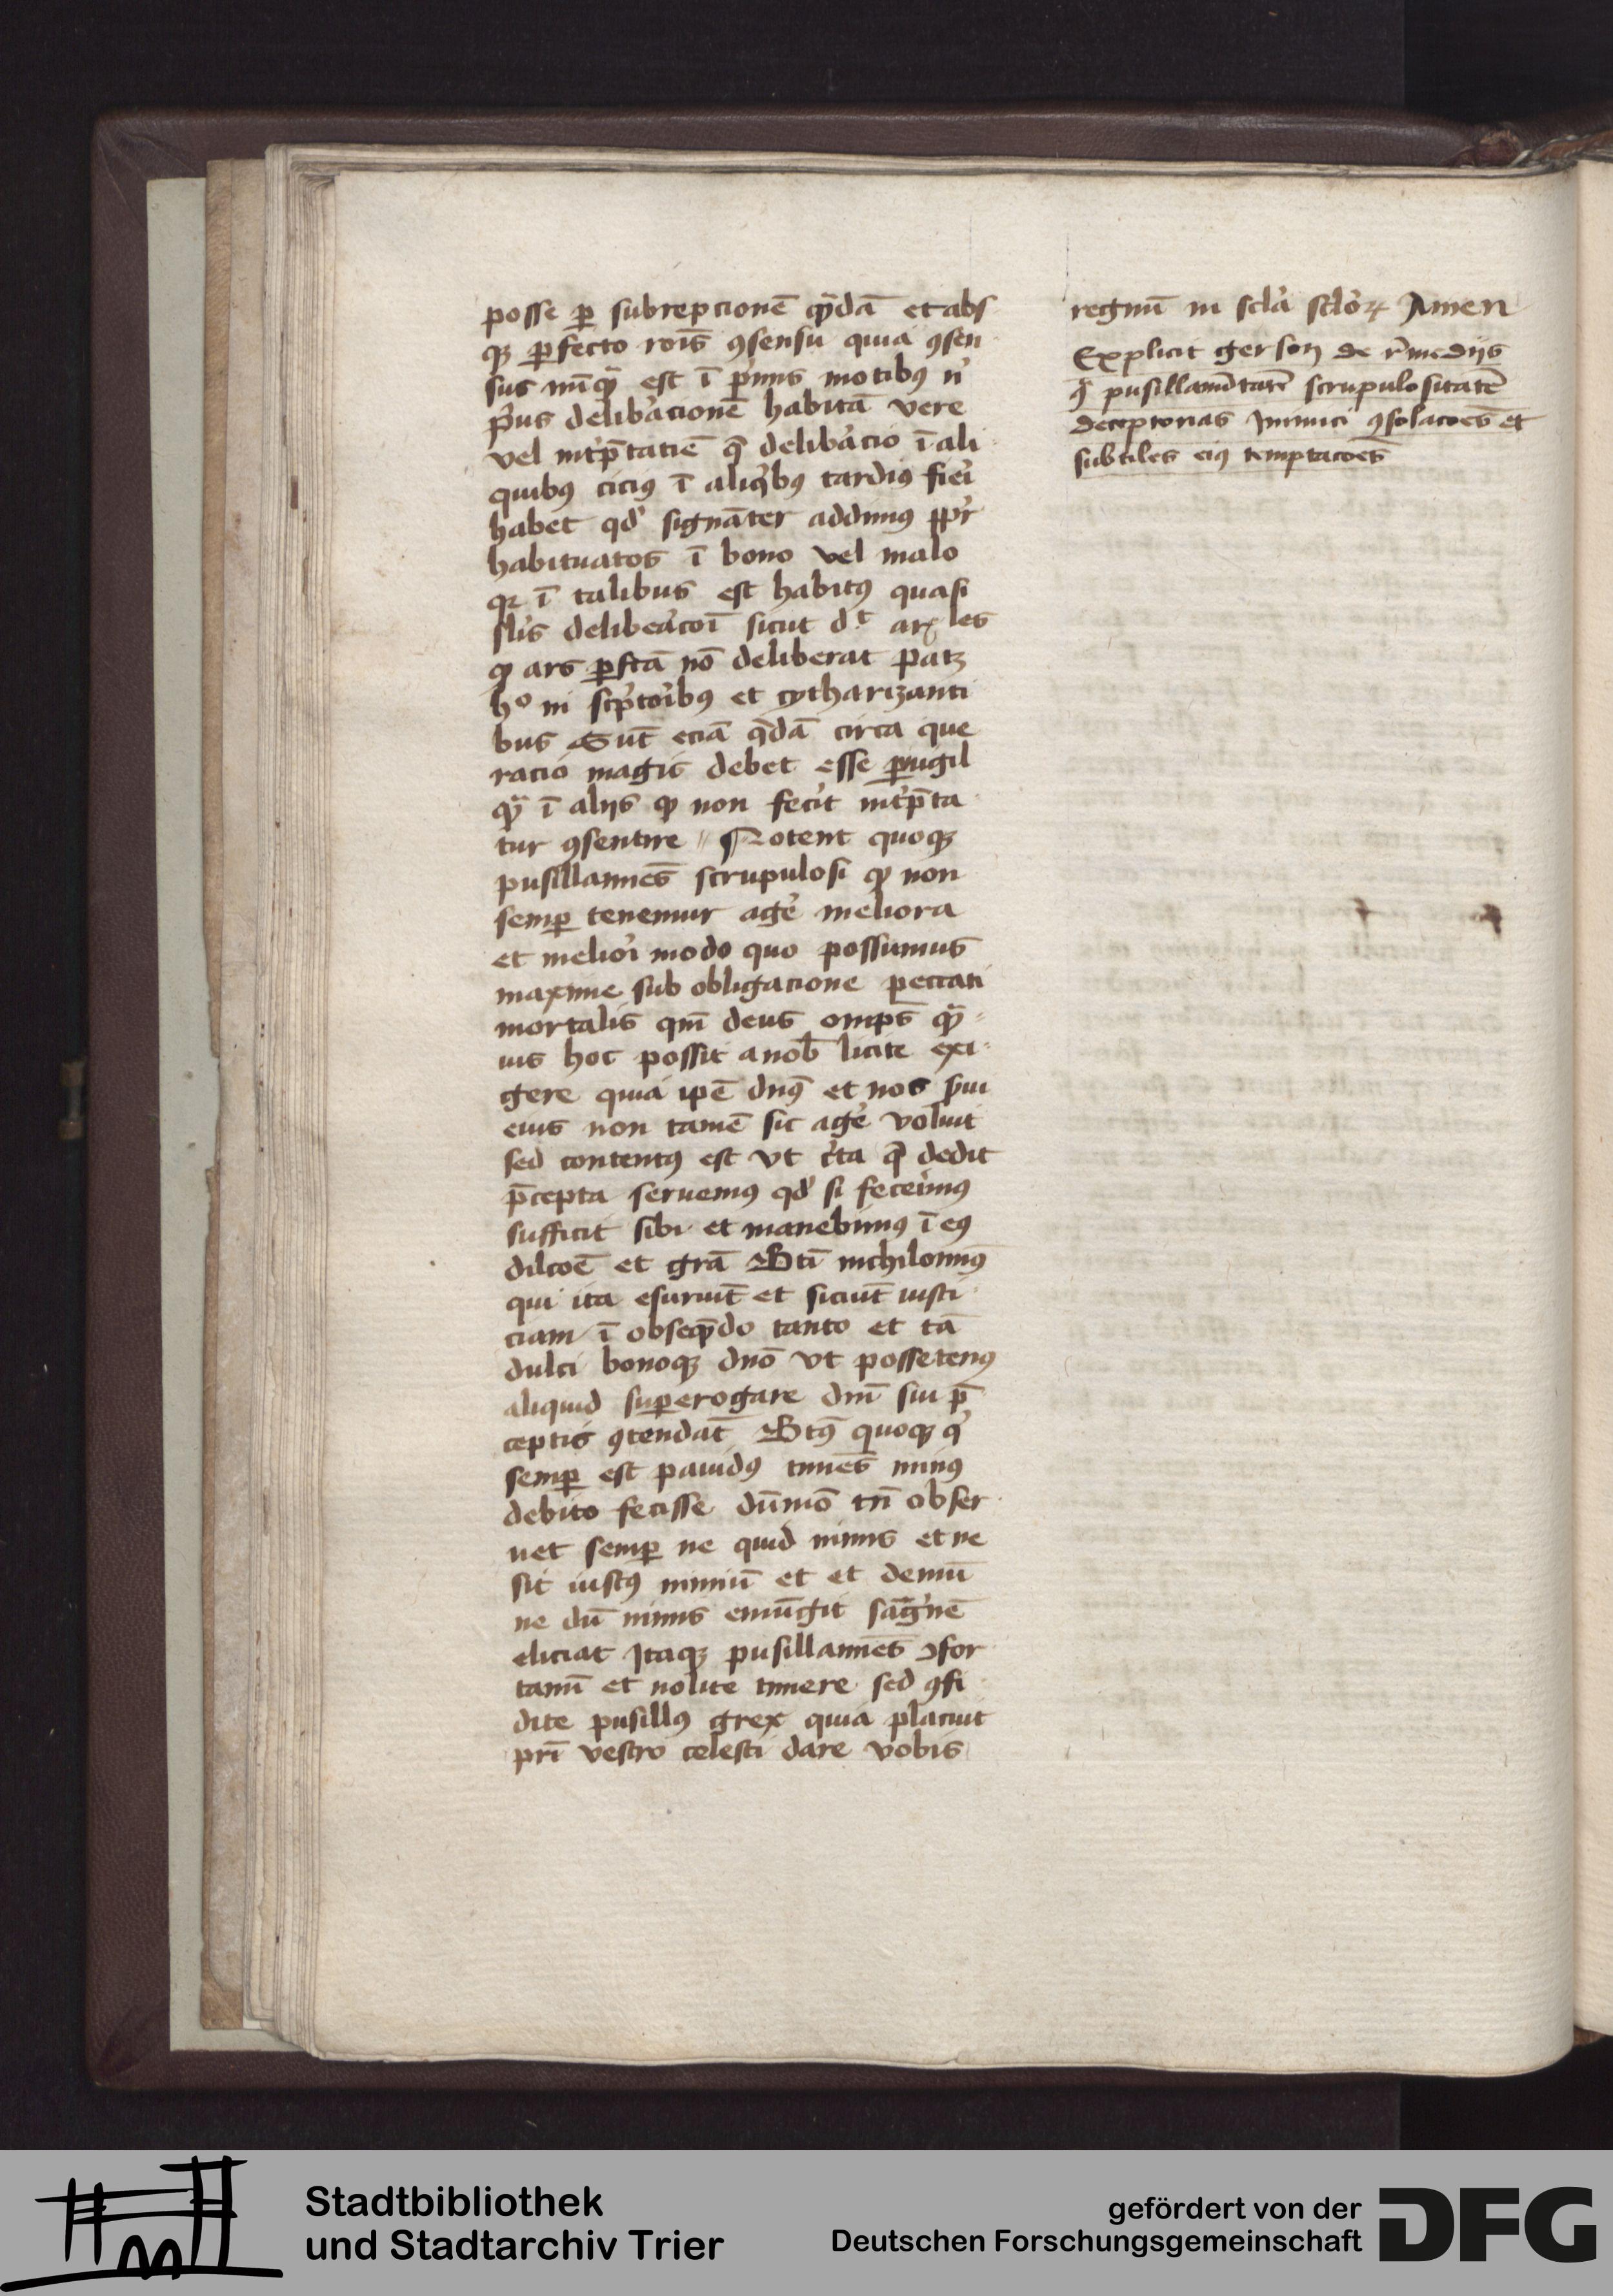 posse ꝑ subrepcionē qͣdā et abs
qꝫ ꝑfecto roīs ꝯsensu quia ꝯsen
sus nūqͣ est ī pͥmis motibꝰ nͥ
pͥus delib̾acionē habitā vere
vel int̾p̄tatiē qͣ delib̾acio ī ali
quibꝰ ciciꝰ ī aliqͥbꝰ tardiꝰ fi̾i
habet qd̾ signāter addimꝰ ꝓpt̾
habituatos ī bono vel malo
qꝛ ī talibus est habitꝰ quasi
sl̾is delibe̾acōi sicut dͭ arꝭles
ꝙ ars ꝑfc̄a nō deliberat patꝫ
hͦ in sc̾ptoribꝰ et cytharizanti
bus Sūt eciā qͣdā circa que
racio magis debet esse ꝑuigil
qͣ ī alijs ꝙ non fec̾it int̾p̄ta
tur ꝯsentire // Notent quoqꝫ
pusillanimēs scrupulosi ꝙ non
semꝑ tenemur ag̾e meliora
et melior̾i modo quo possumus
maxime sub obligacione peccati
mortalis qm̄ deus omp̄s qͣ
uis hoc possit a nob̄ licite exi
gere quia ip̄e dn̄s et nos s̾ui
eius non tamē sic ag̾e voluit
sed contentꝰ est vt c̾ta qͣ dedit
p̄cepta seruemꝰ qd̾ si fecer̾imꝰ
sufficit sibi et manebimꝰ ī eꝰ
dilcōe et grā Btī nichilominꝰ
qui ita esuriūt et siciūt iusti
ciam ī obseqͣdo tanto et tā
dulci bonoqꝫ dnō vt possetenꝰ
aliquid suꝑerogare dnī sui p̄
ceptis ꝯtendāt Btꝰ quoqꝫ qͥ
semꝑ est pauidꝰ timēs minꝰ
debito fecisse dūmō tn̄ obser
uet semꝑ ne quid nimis et ne
sit iustꝰ nimiū et et demū
ne dū nimis emūgit sāg̾nē
eliciat Itaqꝫ pusillanimēs ꝯfor
tamī et nolite timere sed ꝯfi
dite pusillꝰ grex quia placuit
prī vestro celesti dare vobis
regnū in sc̾la sc̾loꝝ Amen
Explicit gerson de r̾medijs
ꝯͣ pusillanīitatē scrupulositatē
deceptorias Inimici ꝯsolacōes et
subtiles eiꝰ temptacōes
Stadtbibliothek
und Stadtarchiv Trier
gefördert von der
Deutschen Forschungsgemeinschaft
DFG